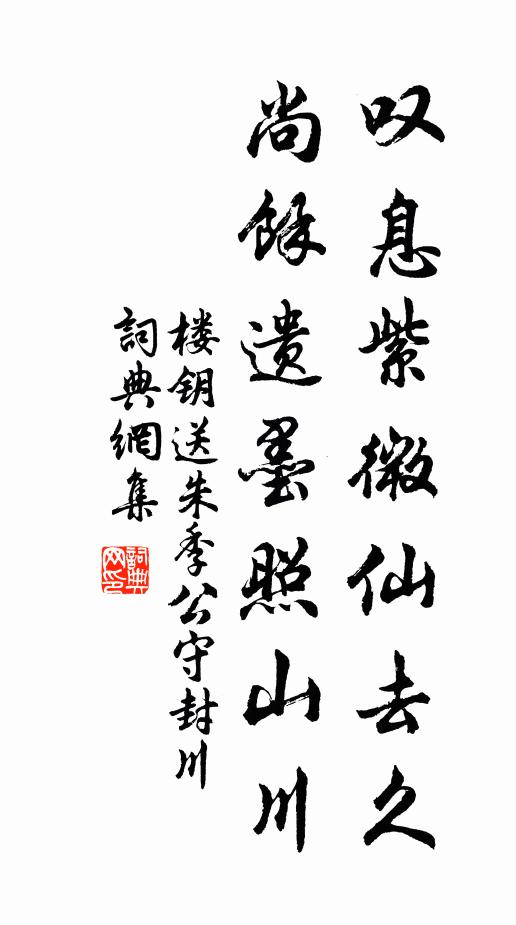 叹息紫微仙去久
尚餘遗墨照山川
楼钥送朱季公守封川
詞典網集
詞典网印